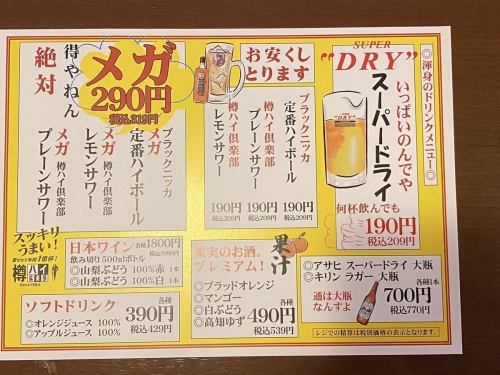 ◎渾身のドリンクメニュー◎
SUPER
"DRY"
いっぱいのんでや
スーパードライ
何杯飲んでも
190円
税込209円
お安くし
とります
ブラックニッカ
定番ハイボール
190円
税込209円
樽ハイ倶楽部
プレーンサワー
190円
税込209円
樽ハイ倶楽部
レモンサワー
190円
税込209円
絶対
得やねん
メガ
290円
税込319円
ブラックニッカ
メガ 定番ハイボール
メガ 樽ハイ倶楽部
レモンサワー
メガ 樽ハイ倶楽部
プレーンサワー
スッキリ
うまい!
樽ハイ
倶楽部
日本ワイン 各種1800円
飲み切り500mlボトル
◎山梨ぶどう 100%赤 1本
◎山梨ぶどう 100%白 1本
ソフトドリンク
◎オレンジジュース 100%
◎アップルジュース 100%
各種
390円
税込429円
果実のお酒。
プレミアム!
果汁
◎ブラッドオレンジ
◎マンゴー
◎白ぶどう
◎高知ゆず
各種
490円
税込539円
◎アサヒ スーパードライ 大瓶
◎キリン ラガー 大瓶
通は大瓶
なんすよ
各種1本
700円
税込770円
レジでの精算は税別価格の表示となります。